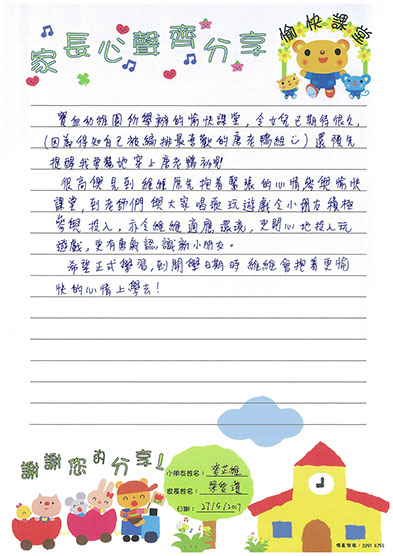 家長心聲齊分享
愉快課堂
寶血幼稚園所舉辦的愉快課堂，令女兒已期待很久，
(因為得知自己被編排最喜歡的唐老鴨組☺) 還預先
提醒我要幫她穿上唐老鴨衫呢!
很高興見到維維原先抱着緊張的心情參與愉快
課堂，到老師們與大家唱玩遊戲令小朋友積極
參與投入，亦令維維適應環境，更開心地投入玩
遊戲，更有勇氣認識新小朋友。
希望正式學習，到開學日期時維維會抱着更愉
快的心情上學去!
謝謝您的分享!
小朋友姓名：李芷維
家長姓名：
日期：27/5/2017